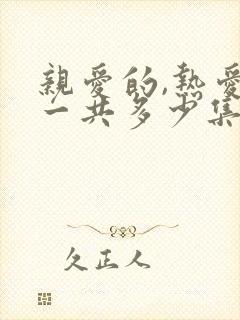 親愛的,熱愛
一共多少集
久正人